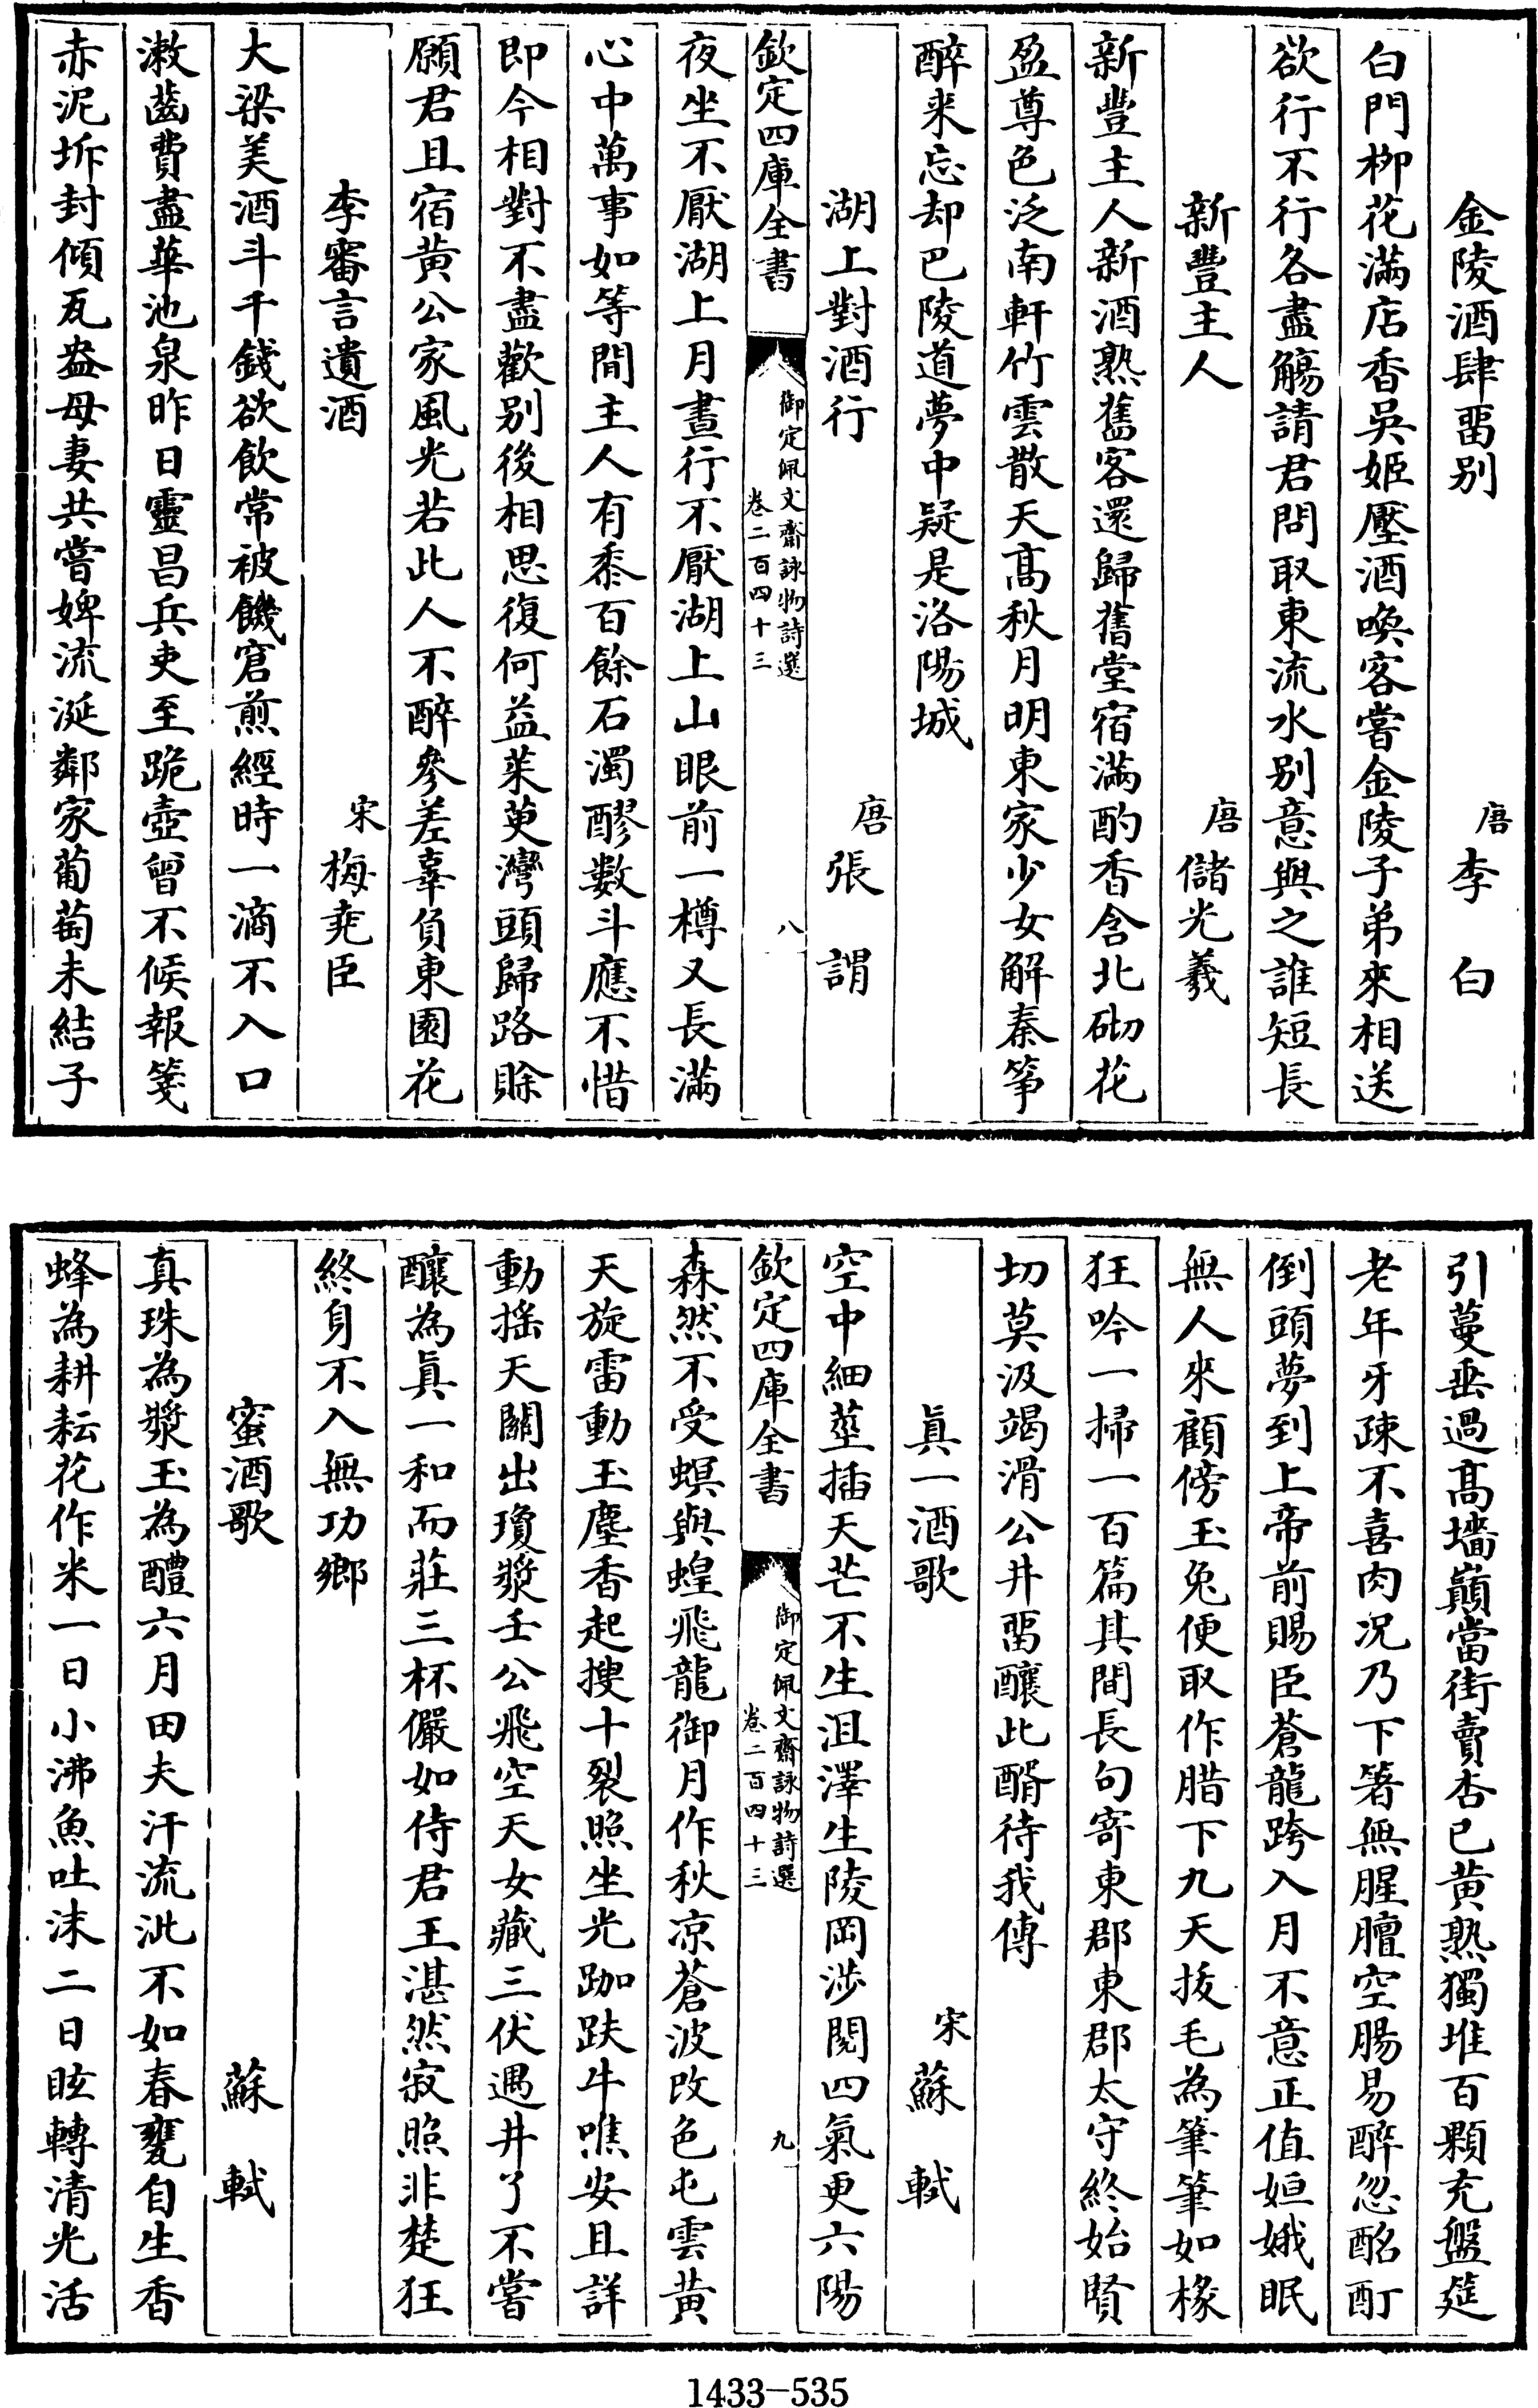 金陵酒肆留别　唐李白
白門柳花滿店香吳姬壓酒喚客嘗金陵子弟來相送
欲行不行各盡觴請君問取東流水别意與之誰短長
新豐主人　唐儲光羲
新豐主人新酒熟舊客還歸舊堂宿滿酌香含北砌花
盈尊色泛南軒竹雲散天髙秋月明東家少女解秦筝
醉來忘却巴陵道夢中疑是洛陽城
湖上對酒行　唐張謂
欽定四庫全書　御定佩文齋詠物詩選卷二百四十三　八
夜坐不厭湖上月晝行不厭湖上山眼前一樽又長滿
心中萬事如等間主人有黍百餘石濁醪數斗應不惜
即今相對不盡歡别後相思復何益茱萸灣頭歸路賖
願君且宿黄公家風光若此人不醉參差辜負東園花
李審言遺酒　宋梅堯臣
大梁美酒斗千錢欲飲常被饑窘煎經時一滴不入口
漱齒費盡華池泉昨日靈昌兵吏至跪壺曾不候報箋
赤泥坼封傾瓦盎母妻共嘗婢流涎鄰家葡萄未結子
引蔓垂過髙墻巔當街賣杏已黄熟獨堆百顆充盤筵
老年牙疎不喜肉況乃下箸無腥膻空腸易醉忽酩酊
倒頭夢到上帝前賜臣蒼龍跨入月不意正值姮娥眠
無人來顧傍玉兔便取作腊下九天拔毛為筆筆如椽
狂吟一掃一百篇其間長句寄東郡東郡太守終始賢
切莫汲竭滑公井留釀此醑待我傳
真一酒歌　宋蘇軾
空中細莖插天芒不生沮澤生陵岡涉閱四氣更六陽
欽定四庫全書　御定佩文齋詠物詩選卷二百四十三　九
森然不受螟與蝗飛龍御月作秋凉蒼波改色屯雲黄
天旋雷動玉塵香起搜十裂照坐光跏趺牛噍安且詳
動摇天關出瓊漿壬公飛空天女藏三伏遇井了不嘗
釀為真一和而莊三杯儼如侍君王湛然寂照非楚狂
終身不入無功鄉
蜜酒歌　蘇軾
真珠為漿玉為醴六月田夫汗流泚不如春甕自生香
蜂為耕耘花作米一日小沸魚吐沫二日眩轉清光活
1433-535